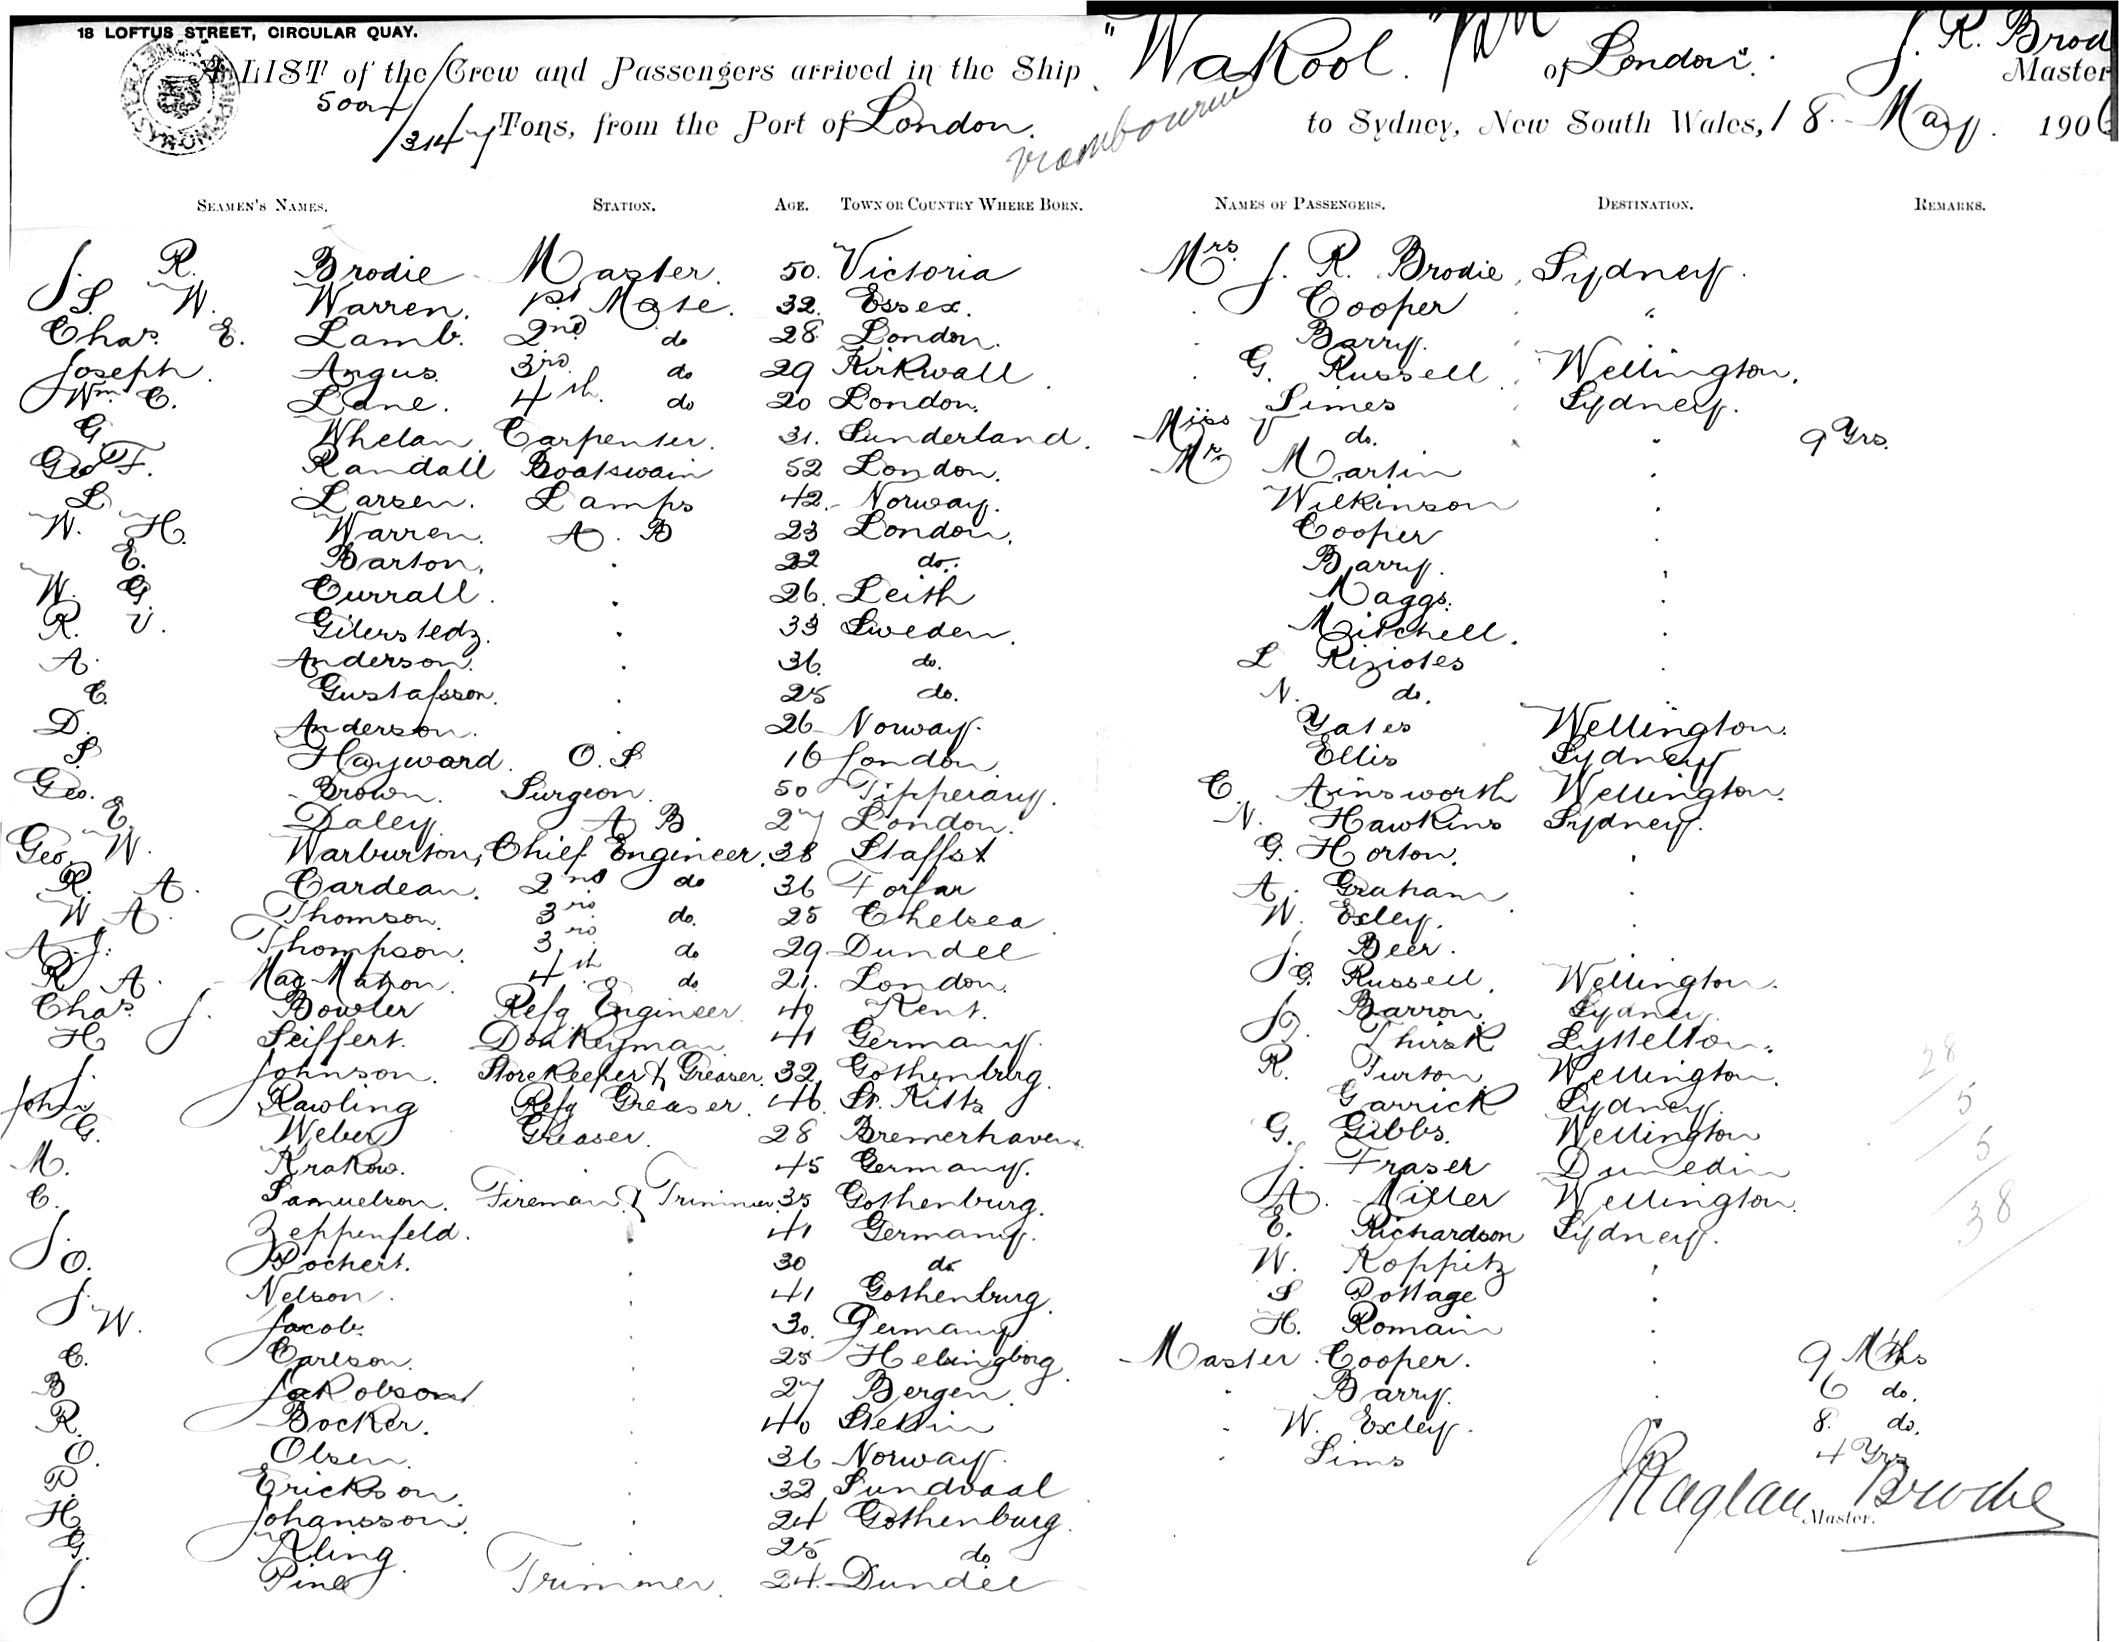 18 LOFTUS STREET, CIRCULAR QUAY.
A LIST of the Crew and Passengers arrived in the Ship "Wakool." of London". J. R. Brod Master
5004/3147 Tons, from the Port of London. to Sydney, New South Wales, 18. May. 190
SEAMEN'S NAMES. STATION. AGE. TOWN OR COUNTRY WHERE BORN.
J. R. Brodie Master. 50. Victoria
S. W. Warren. 1st Mate. 32. Essex.
Chas. E. Lamb. 2nd do 28. London.
Joseph. Angus. 3rd do 29 Kirkwall
Wm. C. Lane. 4th. do 20 London.
G. Whelan. Carpenter. 31. Sunderland.
Geo F. Randall Boatswain 52 London.
L Larsen. Lamps 42. Norway.
W. H. Warren. A. B 23 London.
E. Barton. . 22 do.
W. G Currall . . 26. Leith
R. V. . 33 Sweden.
A. Anderson. . 36. do.
C. Gustafsson. . 25 do.
D. Anderson. . 26 Norway.
S. Hayward. O. S 16 London
Geo. Brown. Surgeon. 50 Tipperary.
E. Daley. A B 27 London.
Geo. W. Warburton, Chief Engineer. 38 Staffst
R. A. Cardean. 2nd do 36 Forfar
W A. Thomson. 3rd do. 25 Chelsea
A. J. Thompson. 3rd do 29 Dundee
R A. Mac Mahon. 4th do. 21. London.
Chas. J. Bowler Refg Engineer. 49 Kent.
H Seiffert. Donkeyman. 41 Germany.
J. Johnson. Storekeeper & Greaser. 32 Gothenburg.
John Rawling Refg Greaser. 46. St. Kitts
G. Weber Greaser. 28 Bremerhaven.
M. Krakow. . 45 Germany.
C. Samuelson. Fireman & Trimmer. 35 Gothenburg.
J. Zeppenfeld. 41 Germany.
O. Pochert. . 30 do.
J. Nelson. . 41 Gothenburg.
W. Jacob. . 30. Germany
C. Carlson. . 25 Helsingborg
B Jakobsen . 27 Bergen.
R. Bocker. . 40 Stettin
O. Olsen. . 36 Norway.
P. Erickson. . 32 Sundvaal
H. Johansson. . 24 Gothenburg.
G. Kling . 25 do.
J. Pine Trimmer. 24. Dundee
NAMES OF PASSENGERS. DESTINATION. REMARKS.
Mrs. J. R. Brodie, Sydney.
. Cooper "
. Barry.
. G. Russell Wellington.
Simes Sydney.
Miss do. " 9 Yrs.
Mr. Martin .
Wilkinson .
Cooper .
Barry. .
Maggs. .
Mitchell. .
L Riziotes .
N. do.
Yates Wellington.
Ellis Sydney
C. Ainsworth Wellington.
N. Hawkins Sydney.
G. Horton. .
A. Graham .
W. Exley. .
J. Beer.
G. Russell. Wellington.
Barron. Sydney.
Thirsk Lyttelton.
R. Turton Wellington.
Garrick Sydney.
G. Gibbs. Wellington
J. Fraser Dunedin
A. Miller Wellington.
E. Richardson Sydney.
W. Koppitz .
S Pottage .
H. Romain .
Master Cooper. . 9 Mths
. Barry. . 6 do.
. W. Exley. . 8. do.
. Sims 4 Yrs
28
5
5
38
J Raglan Brodie
Master.